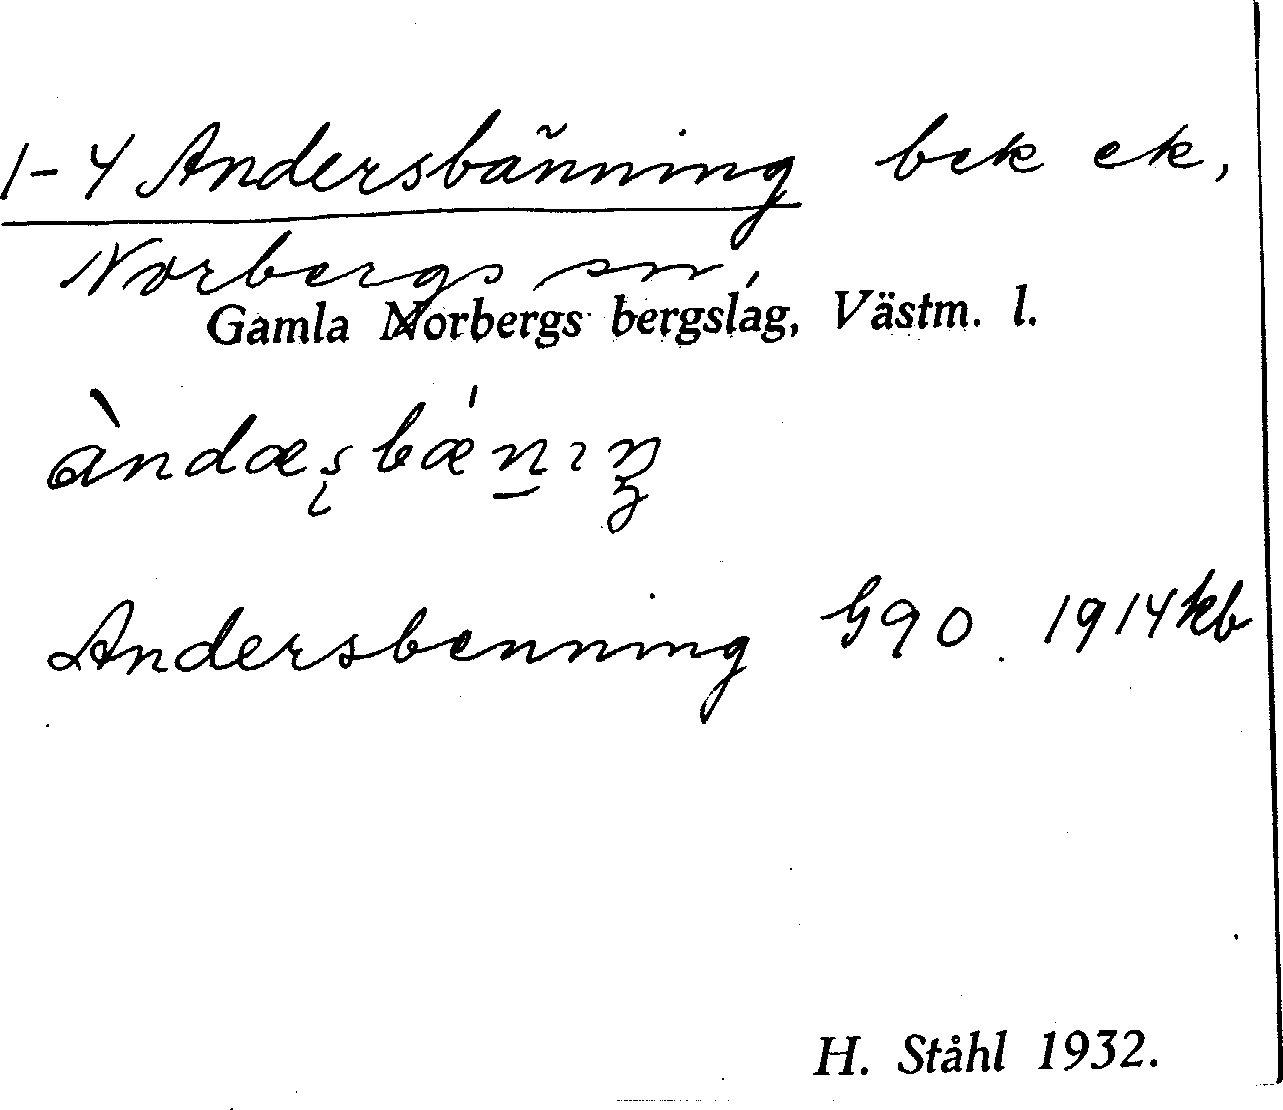 1-4 Andersbänning bek ek,
Norbergs sn,
Gamla Norbergs bergslag, Västm. l.
àndæʂbǽn̲ıŋ
Andersbenning G90 1914kb
H. Ståhl 1932.